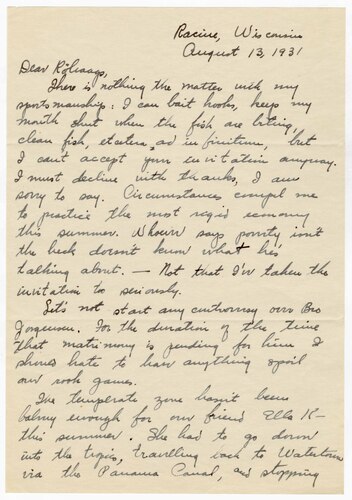 Racine, Wisconsin
August 13, 1931
Dear Rölvaags,
There is nothing the matter with my
sportsmanship: I can bait hooks, keep my
mouth shut when the fish are biting,
clean fish, etcetera, ad infinitum, but
I can't accept your invitation anyway.
I must decline with thanks, I am
sorry to say. Circumstances compel me
to practice the most rigid economy
this summer. Whoever says poverty isn't
the heck doesn't know what he's
talking about. — Not that I've taken the
invitation too seriously.
Let's not start any controversy over Bro
Jorgensen. For the duration of the time
that matrimony is pending for him I
should hate to have anything spoil
our rook games.
The temperate zone hasn't been
balmy enough for our friend Ella K—
this summer. She had to go down
into the tropics, travelling back to Watertown
via the Panama Canal, and stopping